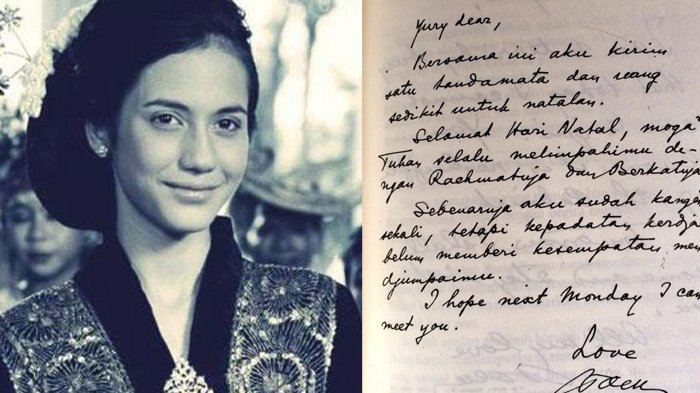 Yury dear,
Bersama ini aku kirim
satu tandamata dan uang
sedikit untuk natalan.
Selamat Hari Natal, moga²
Tuhan selalu melimpahimu de-
ngan Rachmatnja dan Berkatnja
Sebenarnja aku sudah kangen
sekali, tetapi kepadatan kerdja
belum memberi kesempatan men
djumpaimu.
I hope next Monday I can
meet you.
Love